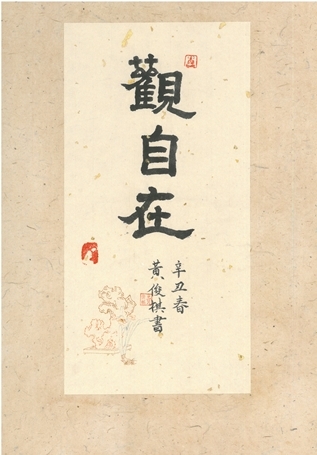 觀自在
辛丑春
黃俊棋書